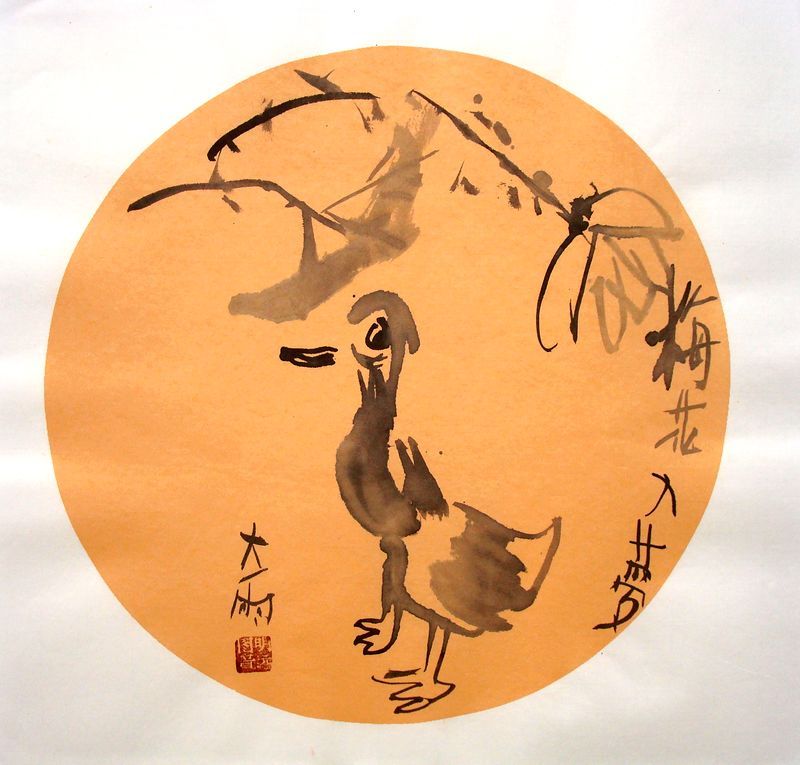 梅花入夢
大雨